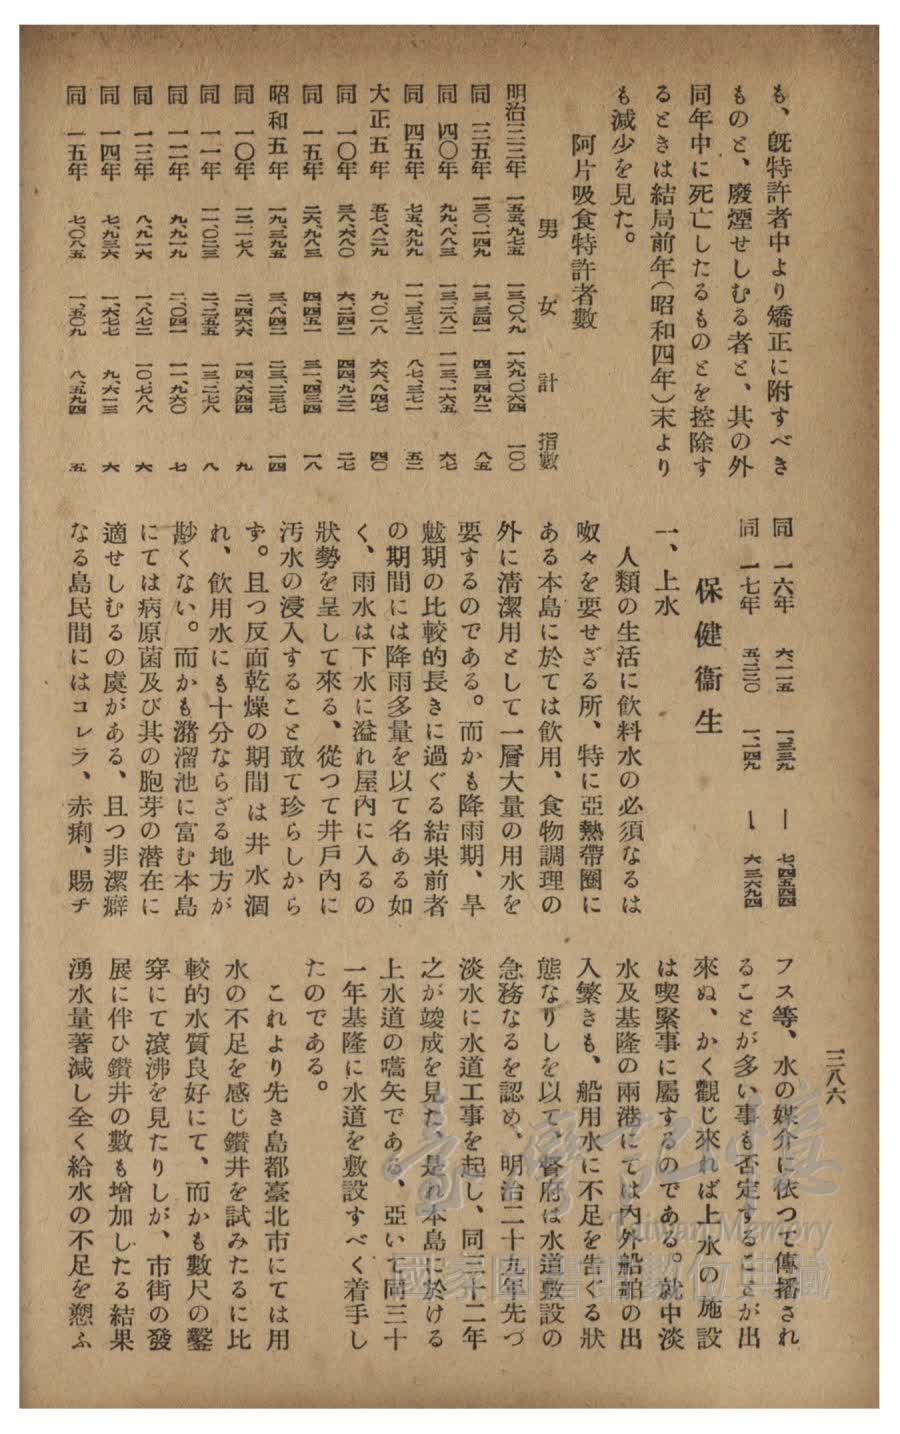 も、既特許者中より矯正に附すべき
ものと、廢煙せしむる者と、其の外
同年中に死亡したるものとを控除す
るときは結局前年(昭和四年)末より
も減少を見た。
阿片吸食特許者數
男 女 計 指數
明治三三年 一五五、九七五 一三、〇八九 一六九、〇六四 一〇〇
同 三五年 一三〇、一四九 一三、三四一 一四三、四九二 八五
同 四〇年 九九、八八三 一三、二八二 一一三、一六五 六七
同 四五年 七五、九九九 一一、三七二 八七、三七一 五二
大正五年 五七、八二九 九、〇一八 六六、八四七 四〇
同 一〇年 三八、六八〇 六、二四二 四四、九二二 二七
同 一五年 二六、九八三 四、四五一 三一、四三四 一八
昭和五年 一九、三九五 三、八四二 二三、二三七 一四
同 一〇年 一二、一七八 二、四六六 一四、六四四 九
同 一一年 一一、〇二三 二、二五五 一三、二七八 八
同 一二年 九、九一九 二、〇四一 一一、九六〇 七
同 一三年 八、九一六 一、八七二 一〇、七八八 六
同 一四年 七、九三六 一、六七七 九、六一三 六
同 一五年 七、〇八五 一、五〇九 八、五九四 五
同 一六年 六、一一五 一、三三九 — 七、四五四 四
同 一七年 五、一二〇 一、二四九 — 六、三六九 四
保健衞生
一、上水
人類の生活に飲料水の必須なるは
呶々を要せざる所、特に亞熱帶圈に
ある本島に於ては飲用、食物調理の
外に淸潔用として一層大量の用水を
要するのである。而かも降雨期、旱
魃期の比較的長きに過ぐる結果前者
の期間には降雨多量を以て名ある如
く、雨水は下水に溢れ屋內に入るの
狀勢を呈して來る、從つて井戶內に
汚水の浸入すること敢て珍らしから
ず。且つ反面乾燥の期間は井水涸
れ、飲用水にも十分ならざる地方が
尠くない。而かも瀦溜池に富む本島
にては病原菌及び其の胞芽の潜在に
適せしむるの虞がある、且つ非潔癖
なる島民間にはコレラ、赤痢、賜チ
フス等、水の媒介に依つて傳播され
ることが多い事も否定することが出
來ぬ、かく觀じ來れば上水の施設
は喫緊事に屬するのである。就中淡
水及基隆の兩港にては內外船舶の出
入繁きも、船用水に不足を吿ぐる狀
態なりしを以て、督府は水道敷設の
急務なるを認め、明治二十九年先づ
淡水に水道工事を起し、同三十二年
之が竣成を見た、是れ本島に於ける
上水道の嚆矢である、亞いで同三十
一年基隆に水道を敷設すべく着手し
たのである。
これより先き島都臺北市にては用
水の不足を感じ鑽井を試みたるに比
較的水質良好にて、而かも數尺の鑿
穿にて滾沸を見たりしが、市街の發
展に伴ひ鑽井の數も增加したる結果
湧水量著減し全く給水の不足を愬ふ
三八六
Taiwan Memory
國家圖書館數位典藏